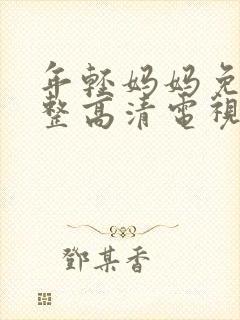 年輕媽媽免
整高清電視
鄧某香